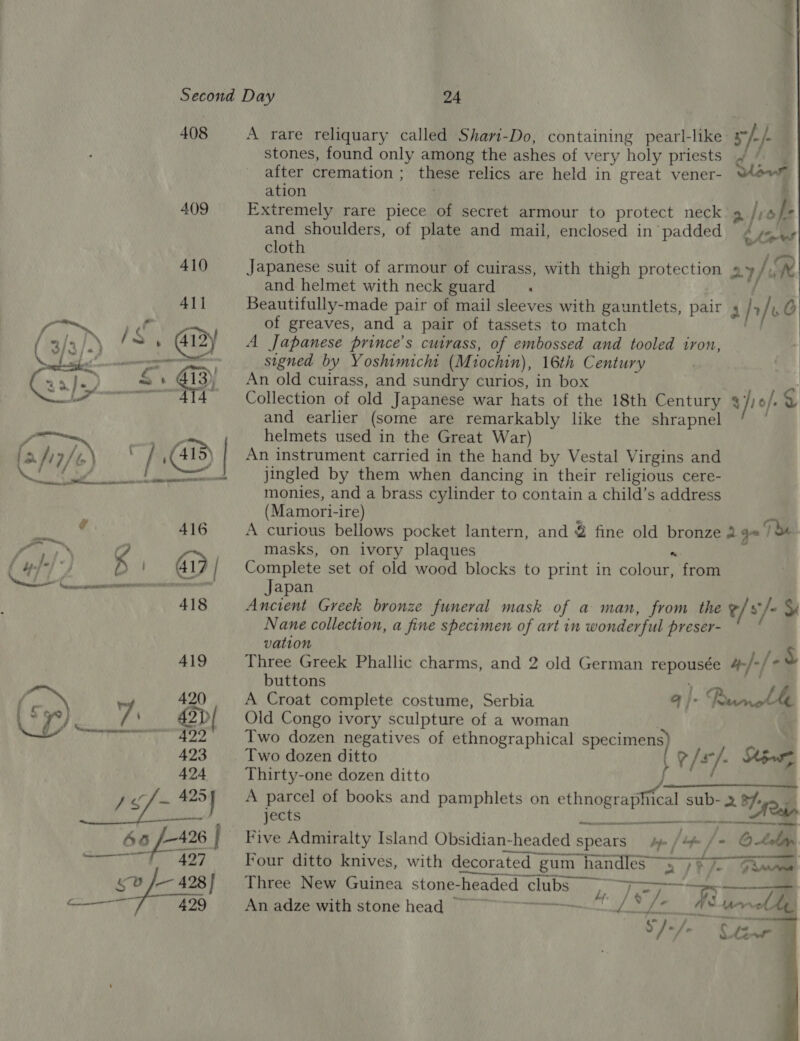 Second Day 24
408 A rare reliquary called Shari-Do, containing pearl-like 5/-/-
stones, found only among the ashes of very holy priests
after cremation ; these relics are held in great vener-
ation
409 Extremely rare piece of secret armour to protect neck
and shoulders, of plate and mail, enclosed in padded
cloth
410 Japanese suit of armour of cuirass, with thigh protection
and helmet with neck guard .
411 Beautifully-made pair of mail sleeves with gauntlets, pair
of greaves, and a pair of tassets to match
412 A Japanese prince's cuirass, of embossed and tooled iron,
signed by Yoshimichi (Miochin), 16th Century
413 An old cuirass, and sundry curios, in box
414 Collection of old Japanese war hats of the 18th Century
and earlier (some are remarkably like the shrapnel
helmets used in the Great War)
415 An instrument carried in the hand by Vestal Virgins and
jingled by them when dancing in their religious cere-
monies, and a brass cylinder to contain a child's address
(Mamori-ire)
416 A curious bellows pocket lantern, and 2 fine old bronze
masks, on ivory plaques
417 Complete set of old wood blocks to print in colour, from
Japan
418 Ancient Greek bronze funeral mask of a man, from the
Nane collection, a fine specimen of art in wonderful preser-
vation
419 Three Greek Phallic charms, and 2 old German repousée 4/-/-
buttons
420 A Croat complete costume, Serbia
Old Congo ivory sculpture of a woman
422 Two dozen negatives of ethnographical specimens
423 Two dozen ditto
424 Thirty-one dozen ditto
425 A parcel of books and pamphlets on ethnographical sub-
jects
426 Five Admiralty Island Obsidian-headed spears
427 Four ditto knives, with decorated gum handles
428 Three New Guinea stone-headed clubs
429 An adze with stone head
5/-/-